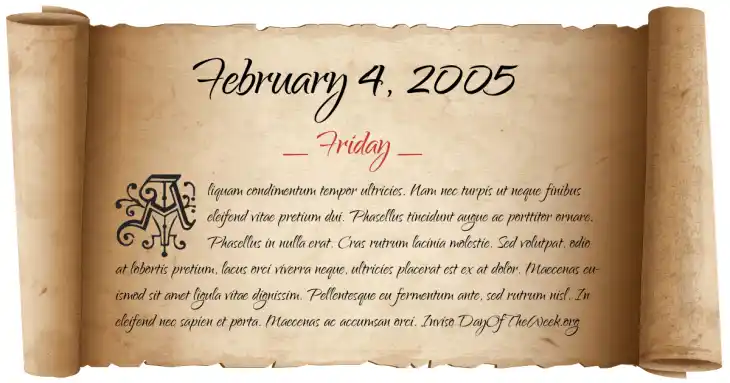 February 4, 2005
— Friday —
Aliquam condimentum tempor ultricies. Nam nec turpis ut neque finibus
eleifend vitae pretium dui. Phasellus tincidunt augue ac porttitor ornare.
Phasellus in nulla erat. Cras rutrum lacinia molestie. Sed volutpat, odio
at lobortis pretium, lacus orci viverra neque, ultricies placerat est ex at dolor. Maecenas eu-
ismod sit amet ligula vitae dignissim. Pellentesque eu fermentum ante, sed rutrum nisl. In
eleifend nec sapien et porta. Maecenas ac accumsan orci. Inviso DayOfTheWeek.org